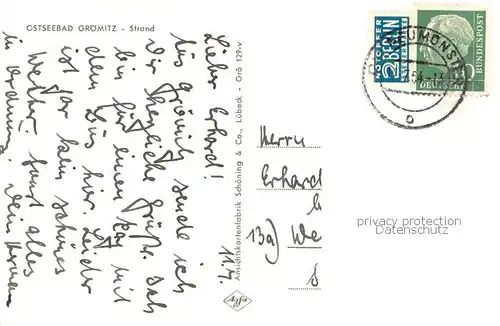 OSTSEEBAD GRÖMITZ - Strand
11.4.
Lieber Erhard!
Aus Grömitz sende ich
Dir herzliche Grüße. Ich
bin für einen Tag mit
dem Bus hier. Leider
ist gar kein schönes
Wetter, sonst alles
in Ordnung. Dein
Ansichtskartenfabrik Schöning & Co., Lübeck - Grö 129-v
Agfa
NOTOPFER
2 BERLIN
STEUERMARKE
DEUTSCHE
BUNDESPOST
10
NEUMÜNSTER
Herrn
Erhard
13a)
privacy protection
Datenschutz